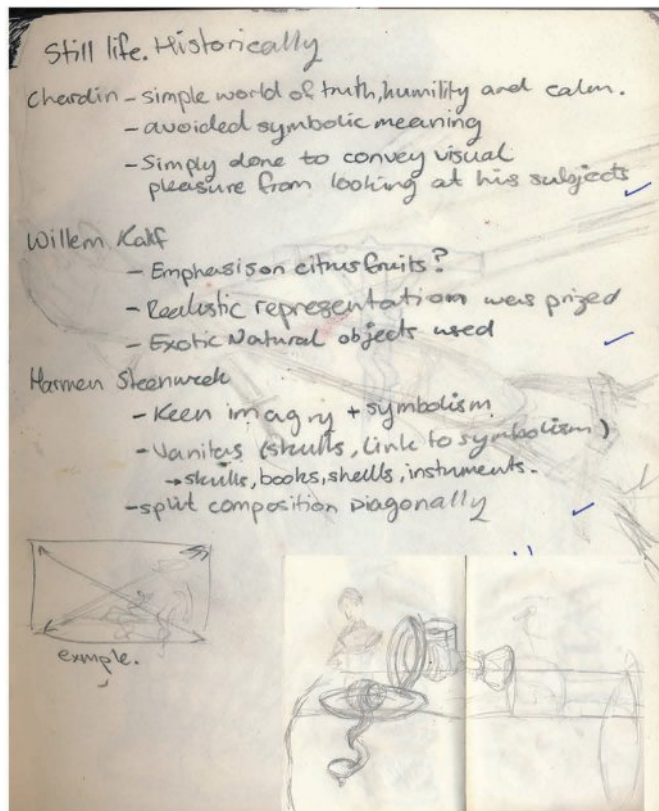 Still life. Historically
Chardin - simple world of truth, humility and calm.
- avoided symbolic meaning
- Simply done to convey visual
pleasure from looking at his subjects
Willem Kalf
- Emphasis on citrus fruits?
- Realistic representation was prized
- Exotic Natural objects used
Harmen Steenweek
- Keen imagry + symbolism
- Vanitas (skulls, link to symbolism)
→ skulls, books, shells, instuments.
- split composition Diagonally
exmple.